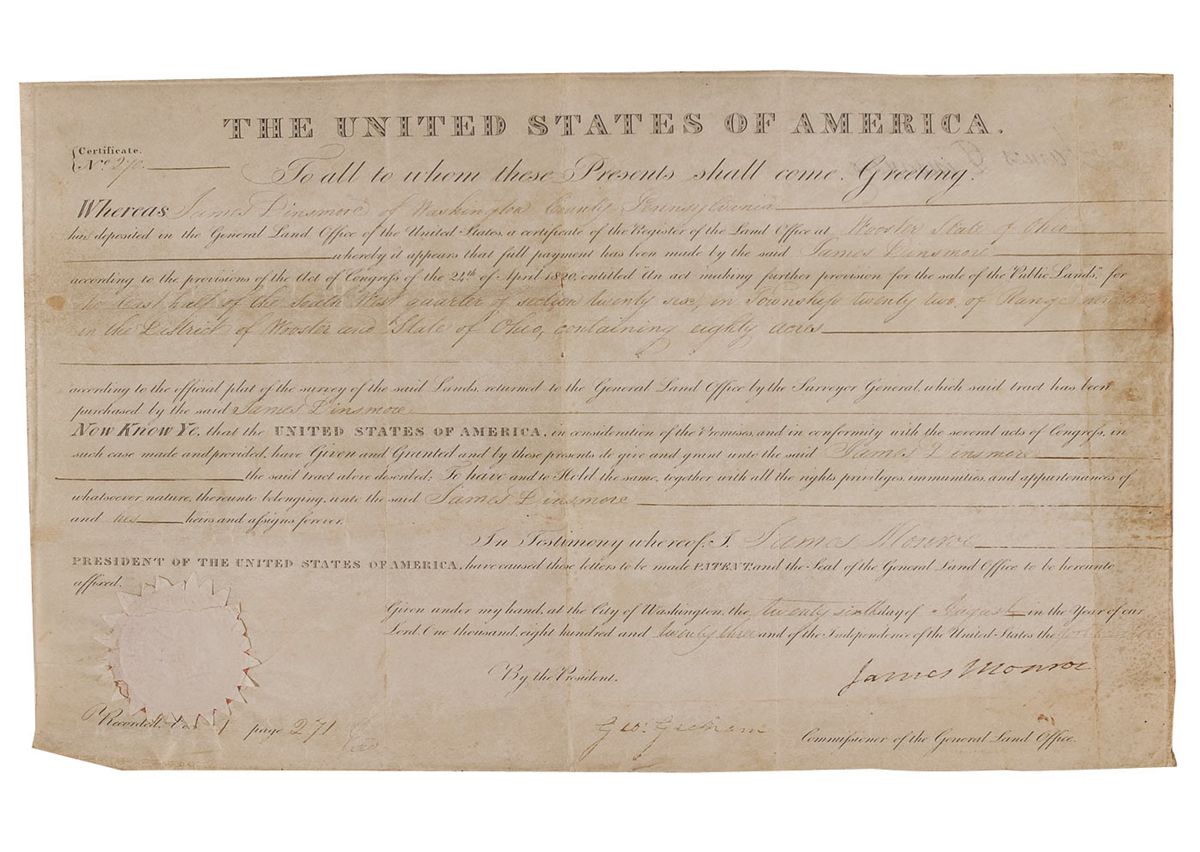 THE UNITED STATES OF AMERICA.
Certificate.
No. 270.
To all to whom these Presents shall come, Greeting.
Whereas James Dinsmore of Washington County Pennsylvania
has deposited in the General Land Office of the United States, a certificate of the Register of the Land Office at Wooster State of Ohio
whereby it appears that full payment has been made by the said James Dinsmore
according to the provisions of the Act of Congress of the 24th of April 1820, entitled "An act making further provision for the sale of the Public Lands", for
the East half of the South West quarter of section twenty six, in Township twenty two, of Range
in the District of Wooster and State of Ohio, containing eighty acres
according to the official plat of the survey of the said Lands, returned to the General Land Office by the Surveyor General, which said tract has been
purchased by the said James Dinsmore
Now Know Ye, that the UNITED STATES OF AMERICA, in consideration of the Premises, and in conformity with the several acts of Congress, in
such case made and provided, have Given and Granted and by these presents do give and grant unto the said James Dinsmore
the said tract above described; To have and to Hold the same, together with all the rights privileges, immunities, and appurtenances of
whatsoever nature, thereunto belonging, unto the said James Dinsmore
and his heirs and assigns forever.
In Testimony whereof, I, James Monroe
PRESIDENT OF THE UNITED STATES OF AMERICA, have caused these letters to be made PATENT, and the Seal of the General Land Office to be hereunto
affixed.
Given under my hand, at the City of Washington, the twenty sixth day of August in the Year of our
Lord, One thousand, eight hundred and twenty three and of the Independence of the United States the
By the President.
James Monroe
Recorded, page 271
Geo: Graham
Commissioner of the General Land Office.